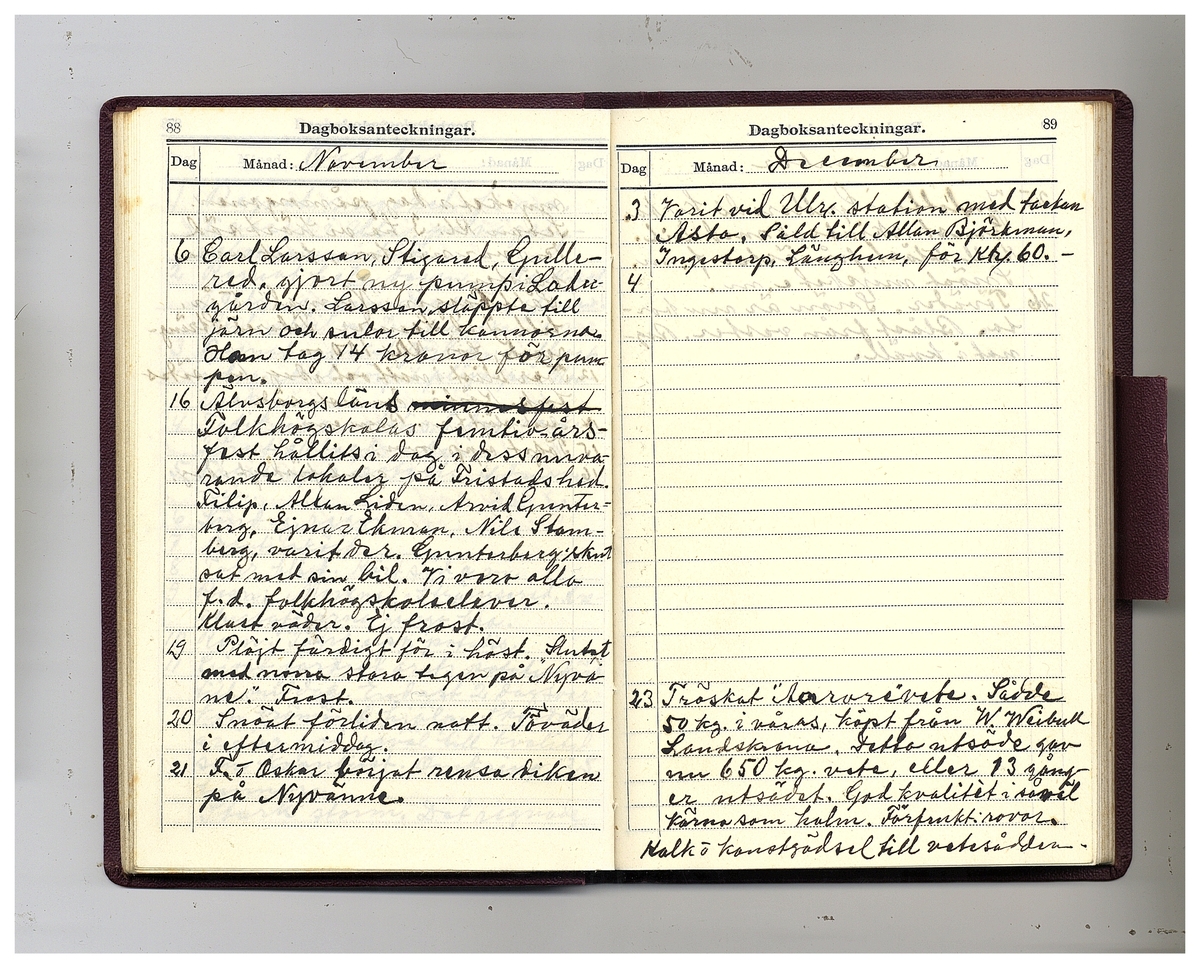 88
Dagboksanteckningar.
Dag
Månad: November
6 Carl Larsson, Stigared, Grille-
red, gjort ny pump i Ladu-
gården. Larsson släppte till
järn och sulor till kannorna.
Han tog 14 kronor för pum
pen.
16 Älvsborgs läns minnesfest
Folkhögskolas femtio-års-
fest hållits i dag i dess nuva-
rande lokaler på Fristads hed.
Filip, Allan Liden, Arvid Gunter-
berg, Ejnar Ekman, Nils Stom-
berg, varit der. Gunterberg skut
sat med sin bil. Vi voro alla
f.d. folkhögskolselever.
Klart väder. Ej frost.
19 Plöjt färdigt för i höst. Slutat
med norra stora tegen på "Nyvä
ne". Frost.
20 Snöat förliden natt. Töväder
i eftermiddag.
21 F. o Oskar börjat rensa diken
på Nyvänne.
89
Dagboksanteckningar.
Dag
Månad: December
3 Varit vid Ulr. station med tackan
Asta. Såld till Allan Björkman,
Ingestorp, Länghem, för Kr. 60.-
4
23 Tröskat "Aurore" vete. Sådde
50 kg. i våras, köpt från W. Weibull
Landskrona. Detta utsäde gav
nu 650 kg. vete, eller 13 gång-
er utsädet. God kvalitet i såväl
kärna som halm. Förfrukt: rovor.
Kalk o konstgödsel till vetesådden.